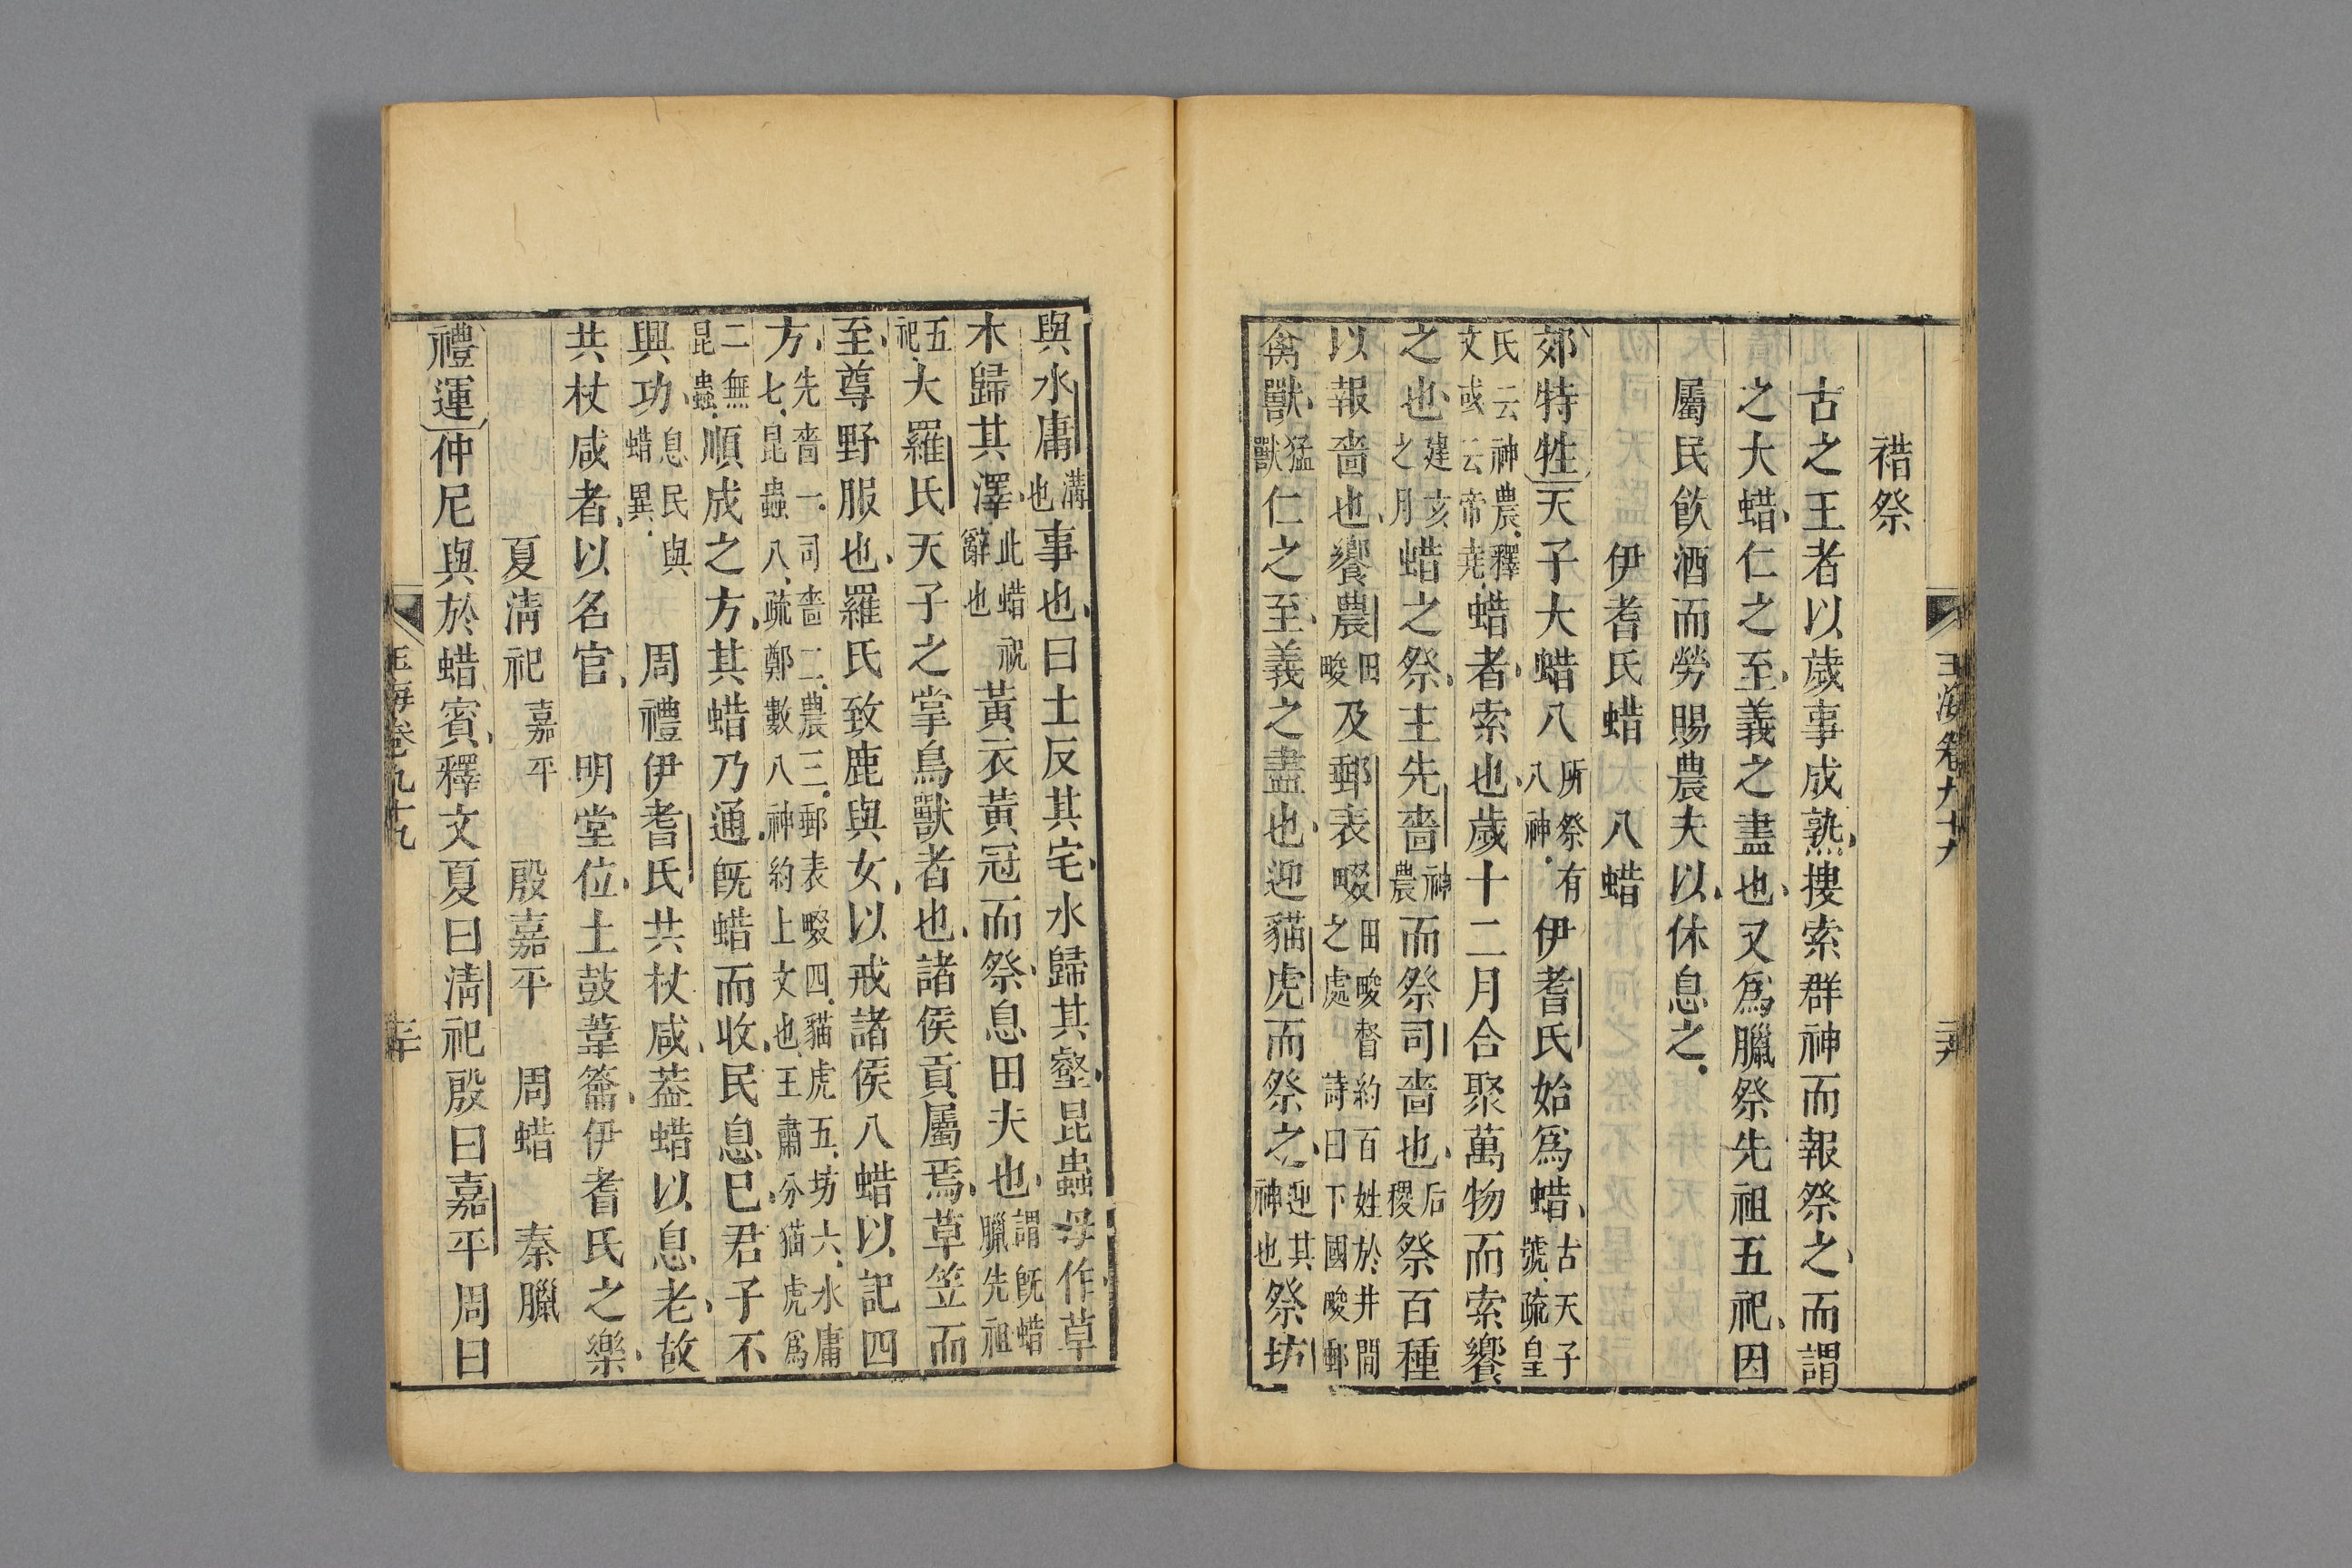 玉海卷九十九
祫祭
古之王者以歲事成熟搜索群神而報祭之而謂
之大蜡仁之至義之盡也又爲臘祭先祖五祀因
屬民飲酒而勞賜農夫以休息之
伊耆氏蜡 八蜡
郊特牲天子大蜡八所祭有八神伊耆氏始爲蜡古天子號疏皇
氏云神農釋文或云帝堯蜡者索也歲十二月合聚萬物而索饗
之也建亥之月蜡之祭主先嗇神農而祭司嗇也后稷祭百種
以報嗇也饗農田畯及郵表畷田畯督約百姓於井間之處詩曰下國畷郵
禽獸猛獸仁之至義之盡也迎貓虎而祭之迎其神也祭坊
與水庸溝也事也曰土反其宅水歸其壑昆蟲毋作草
木歸其澤此蜡祝辭也黃衣黃冠而祭息田夫也謂旣蜡臘先祖
五祀大羅氏天子之掌鳥獸者也諸侯貢屬焉草笠而
至尊野服也羅氏致鹿與女以戒諸侯八蜡以記四
方先嗇一司嗇二農三郵表畷四貓虎五坊六水庸七昆蟲八疏鄭數八神約上文也王肅分猫虎爲
二無昆蟲順成之方其蜡乃通旣蜡而收民息已君子不
興功息民與蜡異 周禮伊耆氏共杖咸葢蜡以息老故
共杖咸者以名官 明堂位土鼓葦籥伊耆氏之樂
夏淸祀嘉平 殷嘉平 周蜡 秦臘
禮運仲尼與於蜡賓釋文夏曰淸祀殷曰嘉平周曰
玉海卷九十九 三十